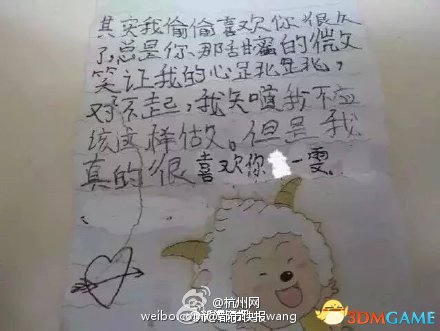 其实我偷偷喜欢你很久
了,总是你那甜蜜的微
笑让我的心跳跳,
对不起,我知道我不应
该这样做。但是我
真的很喜欢你 一雯
@杭州网
3DMGAME